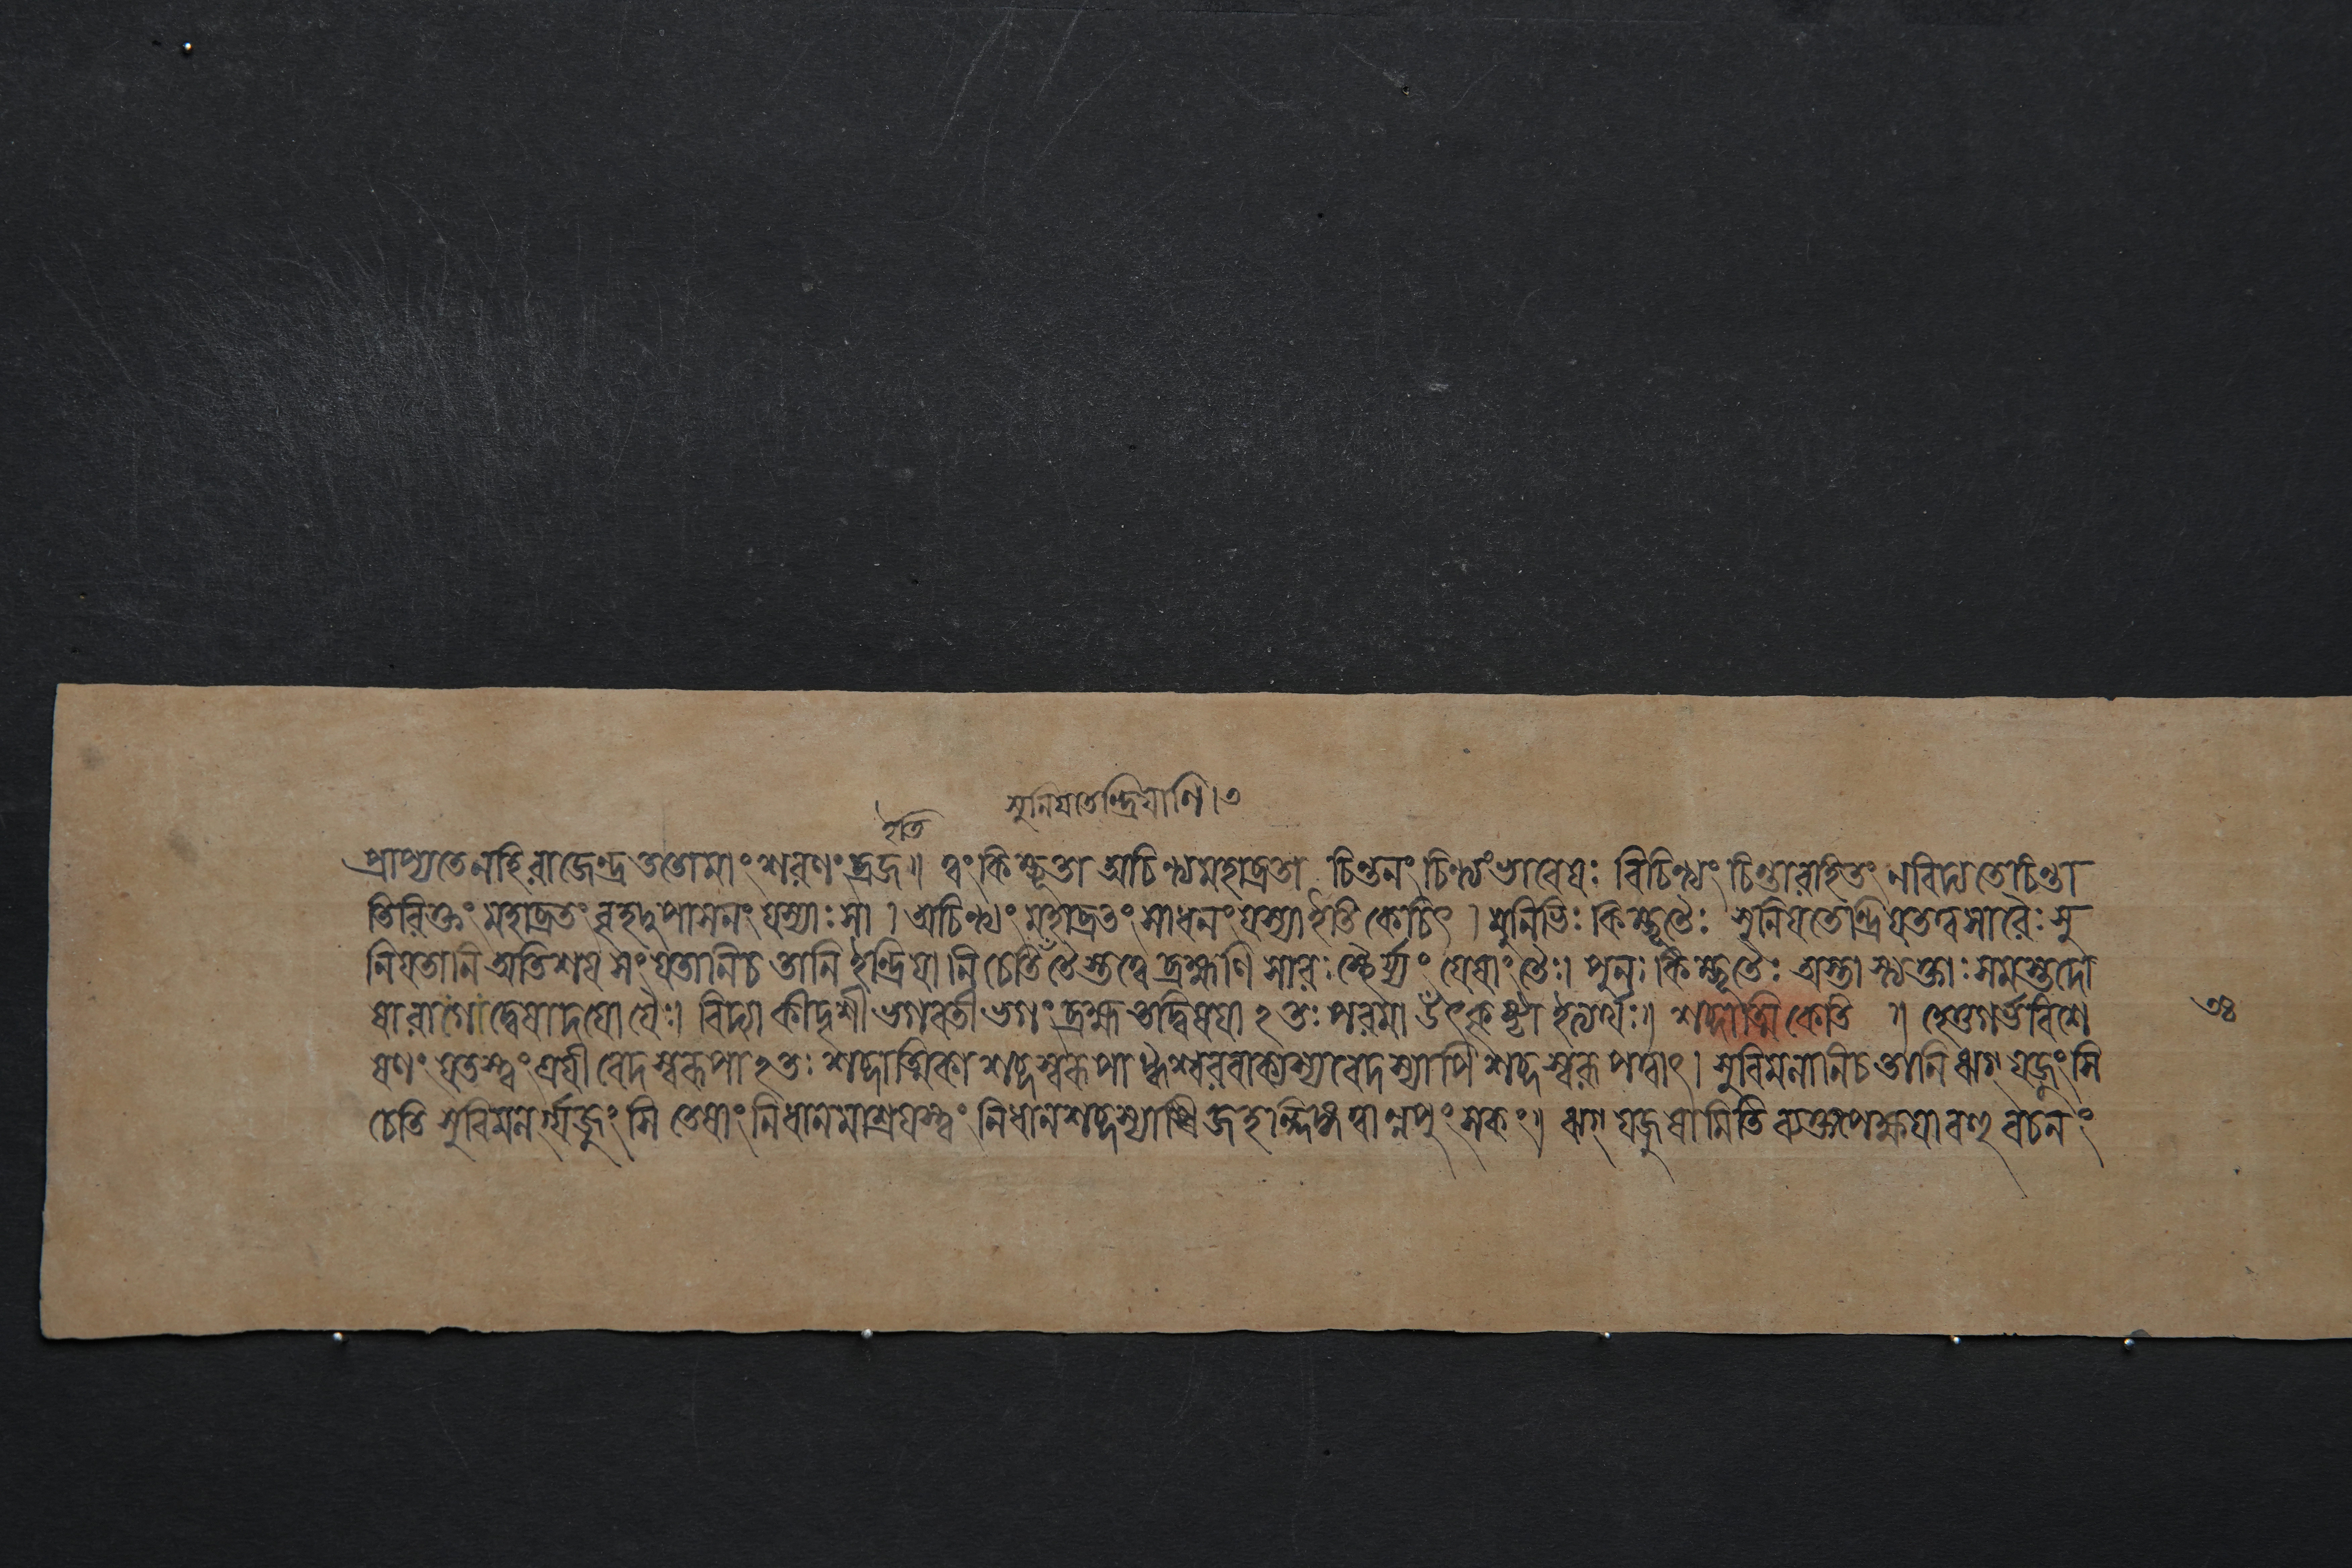 সুনিয়তেন্দ্রিয়াণি । ৩
ইতি
প্রাপ্যতে নহি রাজেন্দ্র ততোমাং শরণং ব্রজ ॥ ত্বং কিম্ভূতা অচিন্ত্যমহাব্রতা চিন্তনং চিন্ত্যং ভাবেয়ঃ বিচিন্ত্যং চিন্তারহিতং নবিদ্যতে চিন্তা
তিরিক্তং মহাব্রতং বৃহদুপাসনং যস্যাঃ সা । অচিন্ত্যং মহাব্রতং সাধনং যস্যা ইতি কেচিৎ । মুনিভিঃ কিম্ভূতৈঃ সুনিয়তেন্দ্রিয়তত্ত্বসারৈঃ সু
নিয়তানি অতিশয় সংযতানিচ তানি ইন্দ্রিয়ানি চেতি তৈস্তত্ত্বে ব্রহ্মণি সারঃ স্থৈর্য্যং যেষাং তৈঃ। পুনঃ কিম্ভূতৈঃ অস্তা স্ত্যক্তাঃ সমস্তদো
ষা রাগো দ্বেষাদয়ো যৈঃ। বিদ্যা কীদৃশী ভগবতী ভগং ব্রহ্ম তদ্বিষয়া ২তঃ পরমা উৎকৃষ্টা ইত্যর্থঃ॥ শব্দাত্মিকেতি ॥ হেতুগর্ভবিশে
ষণং যতস্ত্বং ত্রয়ী বেদস্বরূপা ২তঃ শব্দাত্মিকা শব্দস্বরূপা ঈশ্বরবাক্যস্যবেদস্যাপি শব্দস্বরূপত্বাৎ । সুবিমলানিচ তানি ঋগ্ যজূংসি
চেতি সুবিমলর্গ্যজূংসি তেষাং নিধানমাশ্রয়স্ত্বং নিধানশব্দস্যা জহল্লিঙ্গত্বান্নপুংসকং॥ ঋগ্ যজুষামিতি বহুবচনং